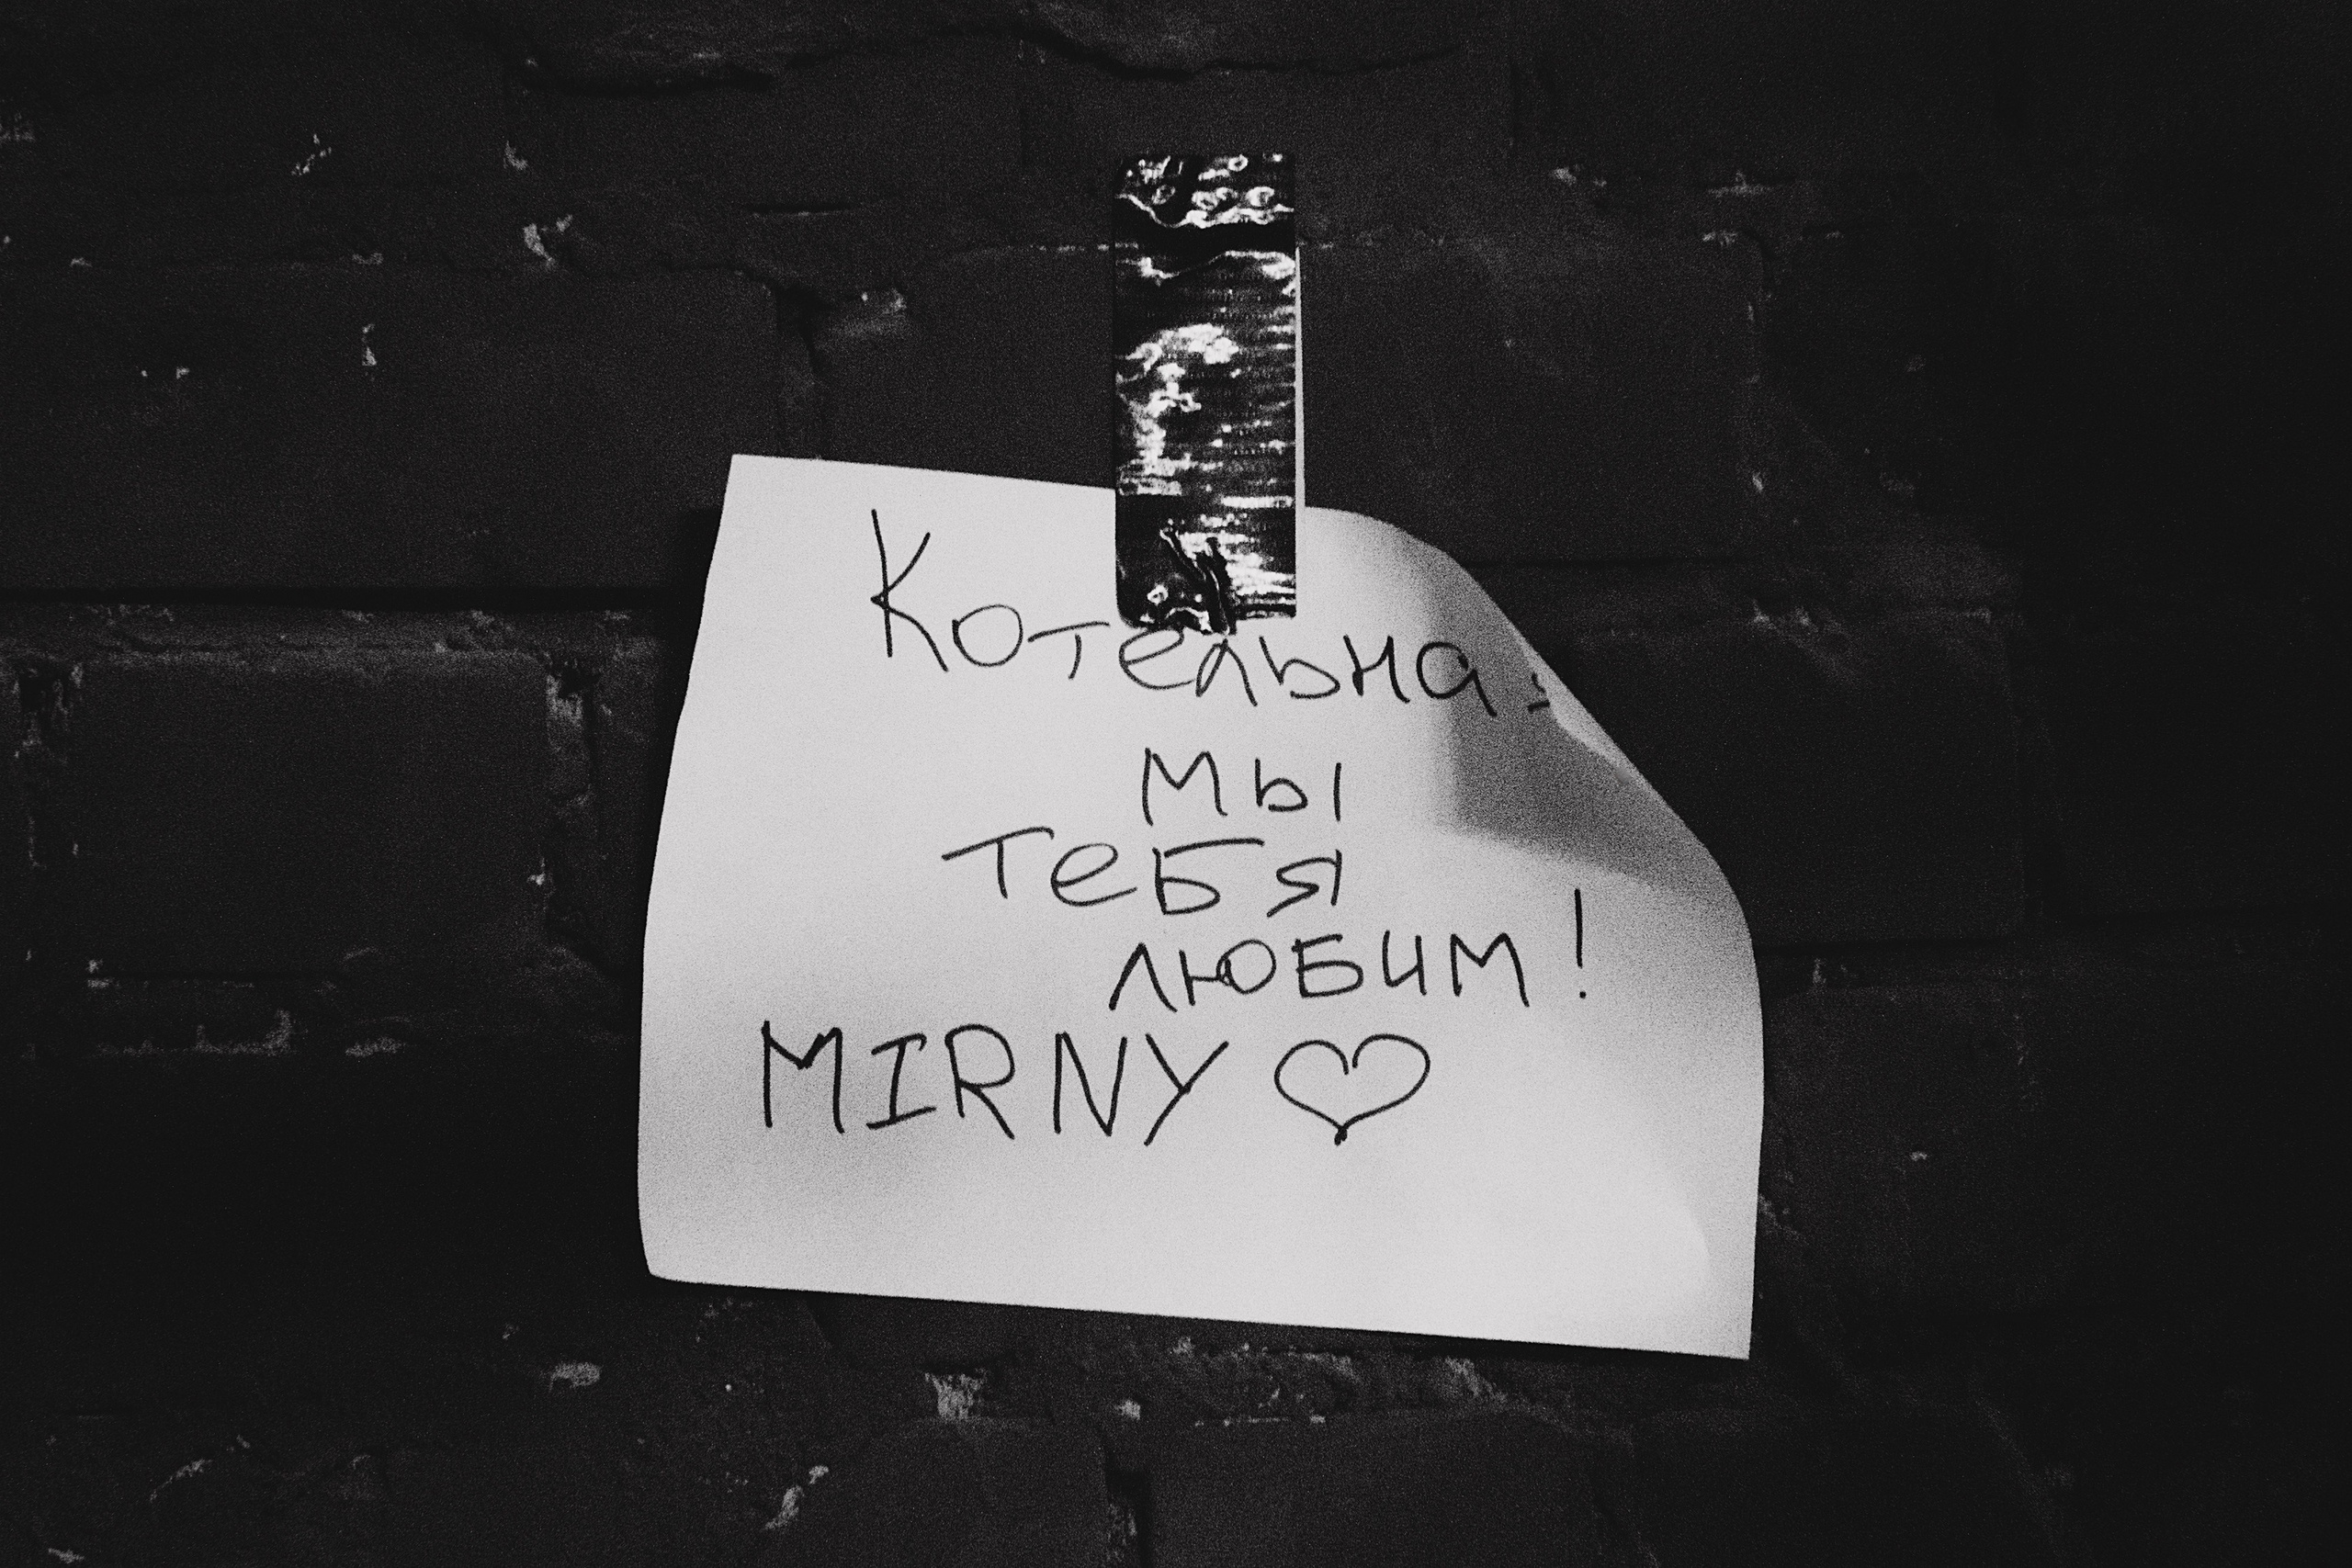 Котельная
мы
тебя
любим!
MIRNY ♡